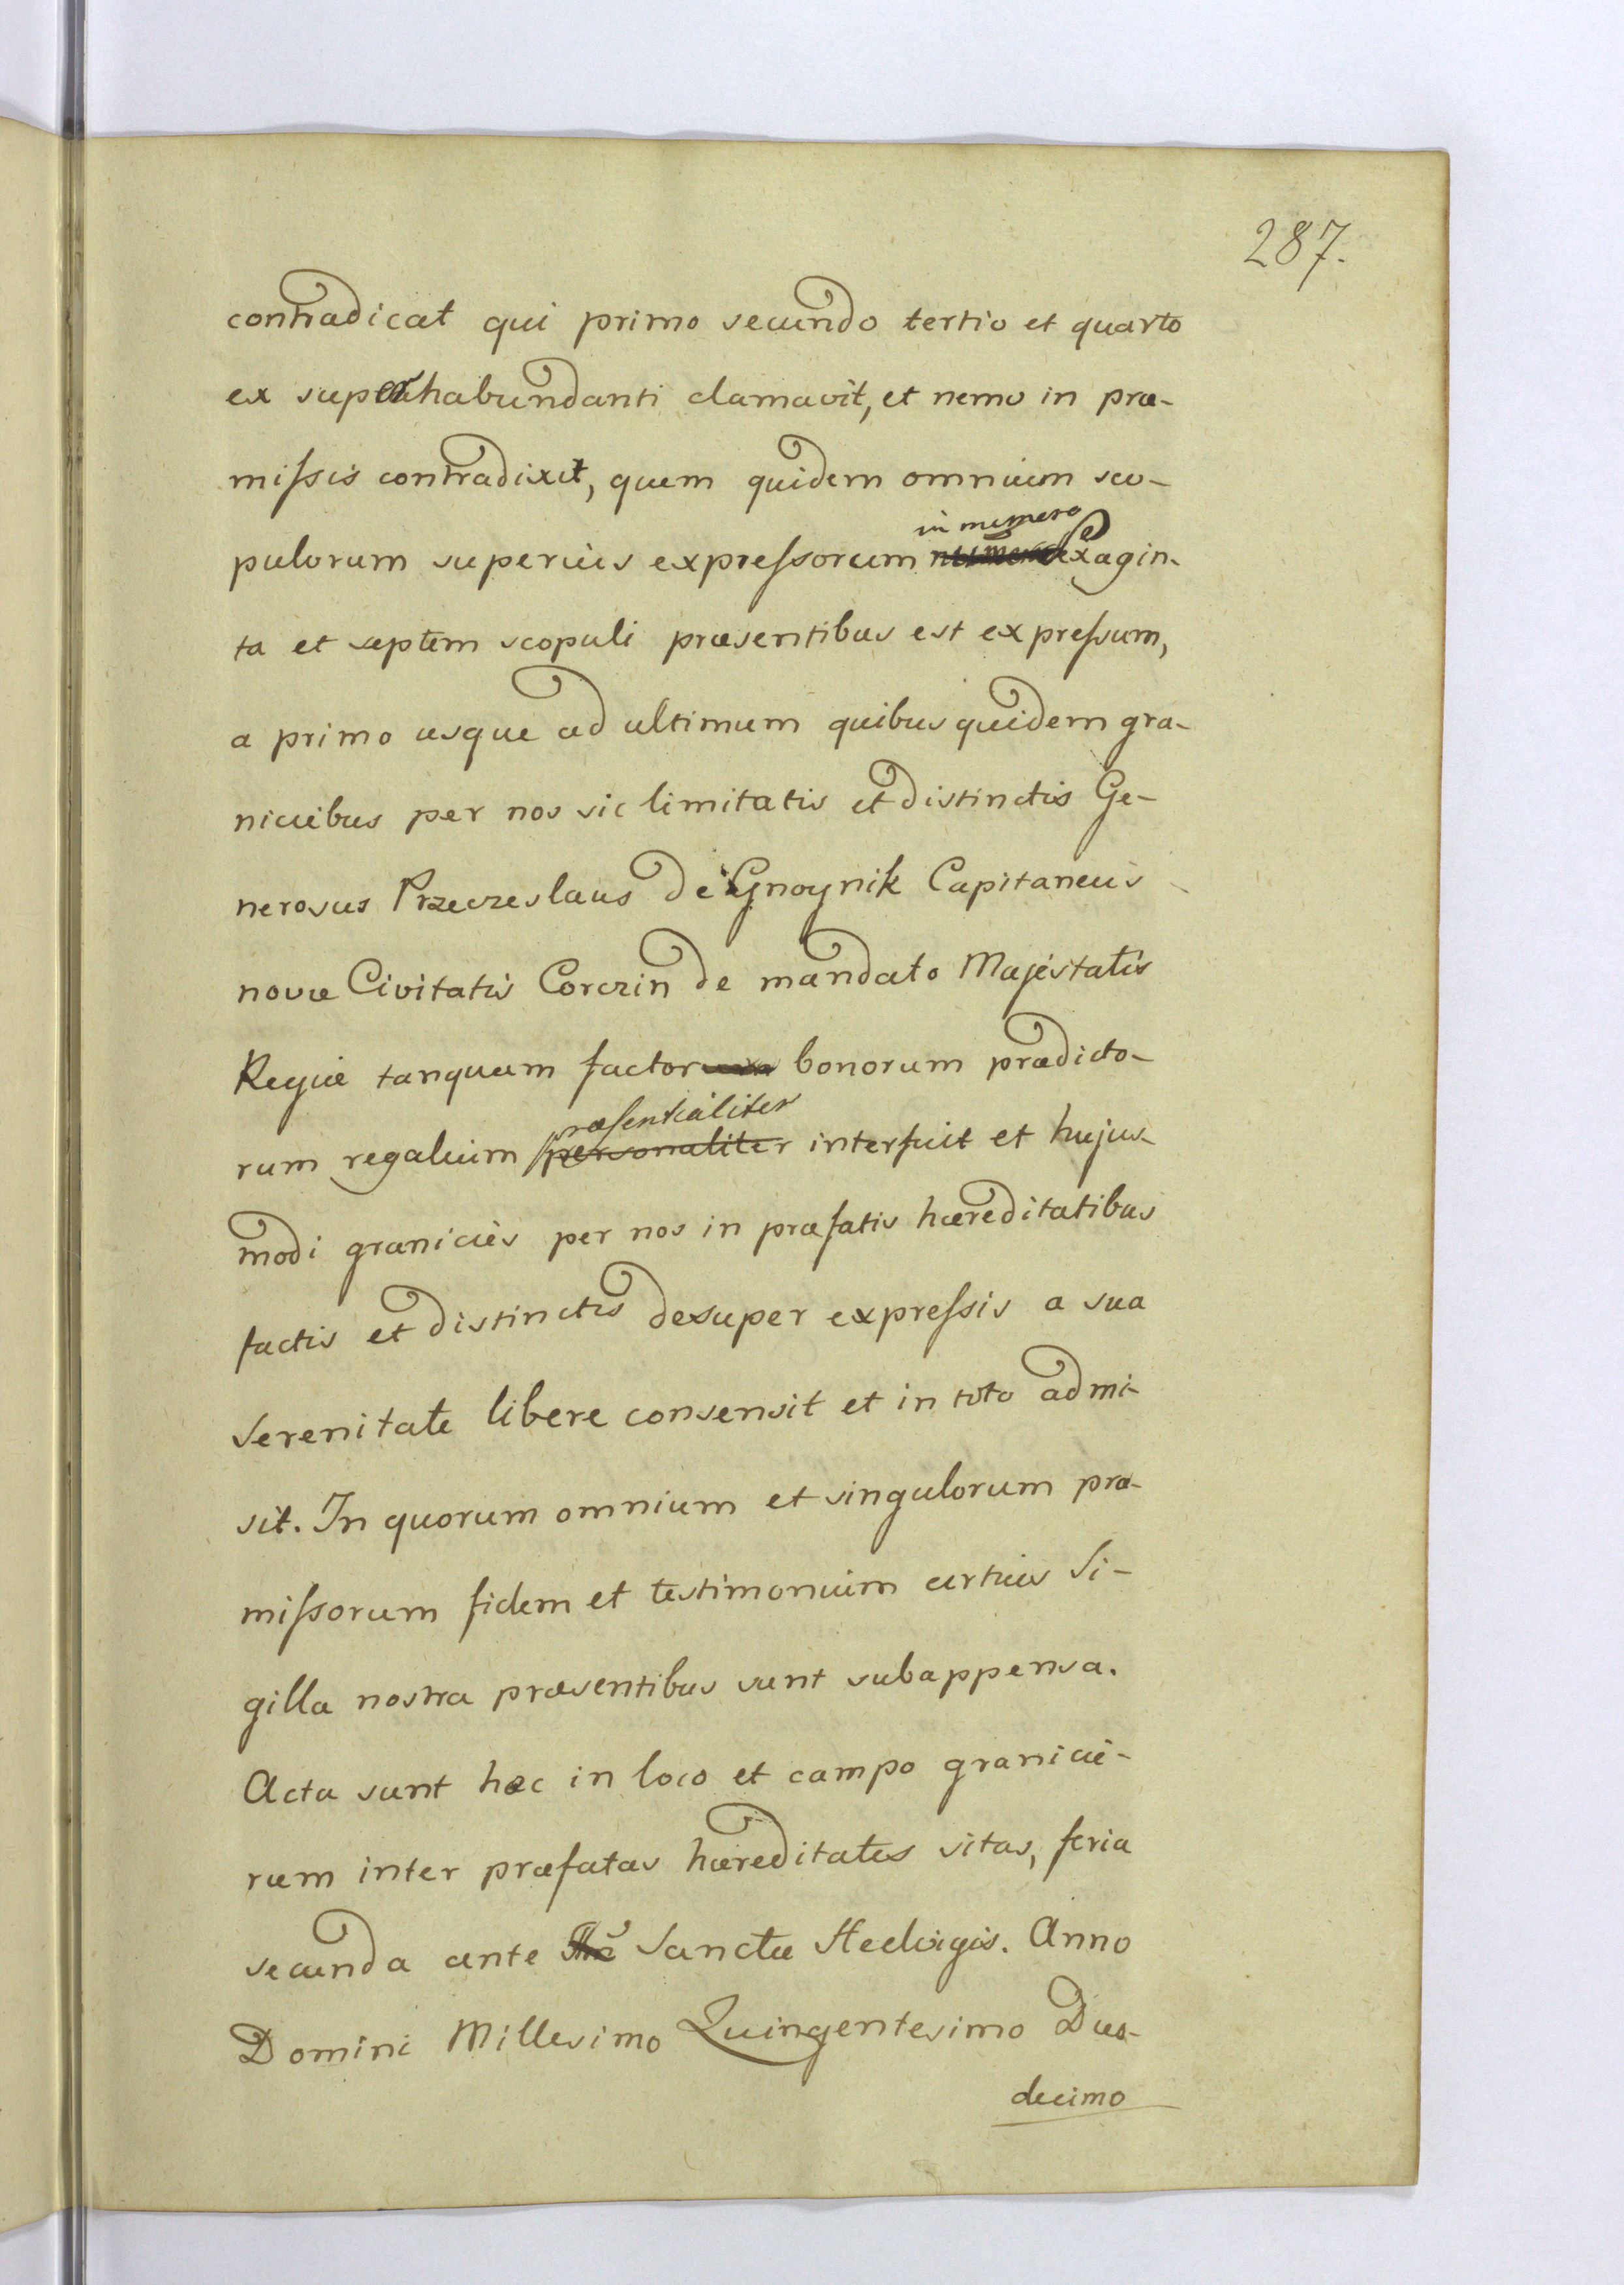 287.
contradicat qui primo secundo tertio et quarto
ex superhabundanti clamavit, et nemo in præ-
missis contradixit, quem quidem omnium sco-
in numero
pulorum superius expressorum sexagin-
ta et septem scopuli præsentibus est expressum,
a primo usque ad ultimum quibus quidem gra-
niciebus per nos sic limitatis et distinctis Ge-
nerosus Przeczeslaus de Gnoynik Capitaneus
novæ Civitatis Corczin de mandato Majestatis
Regiæ tanquam factor bonorum prædicto-
præsentialiter
rum regalium personaliter interfuit et hujus-
modi granicies per nos in præfatis hæreditatibus
factis et distinctis desuper expressis a sua
Serenitate libere consensit et in toto admi-
sit. In quorum omnium et singulorum præ-
missorum fidem et testimonium certius Si-
gilla nostra præsentibus sunt subappensa.
Acta sunt hæc in loco et campo granicie-
rum inter præfatas hæreditates sitas, feria
secunda ante Sanctæ Hedvigis. Anno
Domini Millesimo Quingentesimo Duo-
decimo